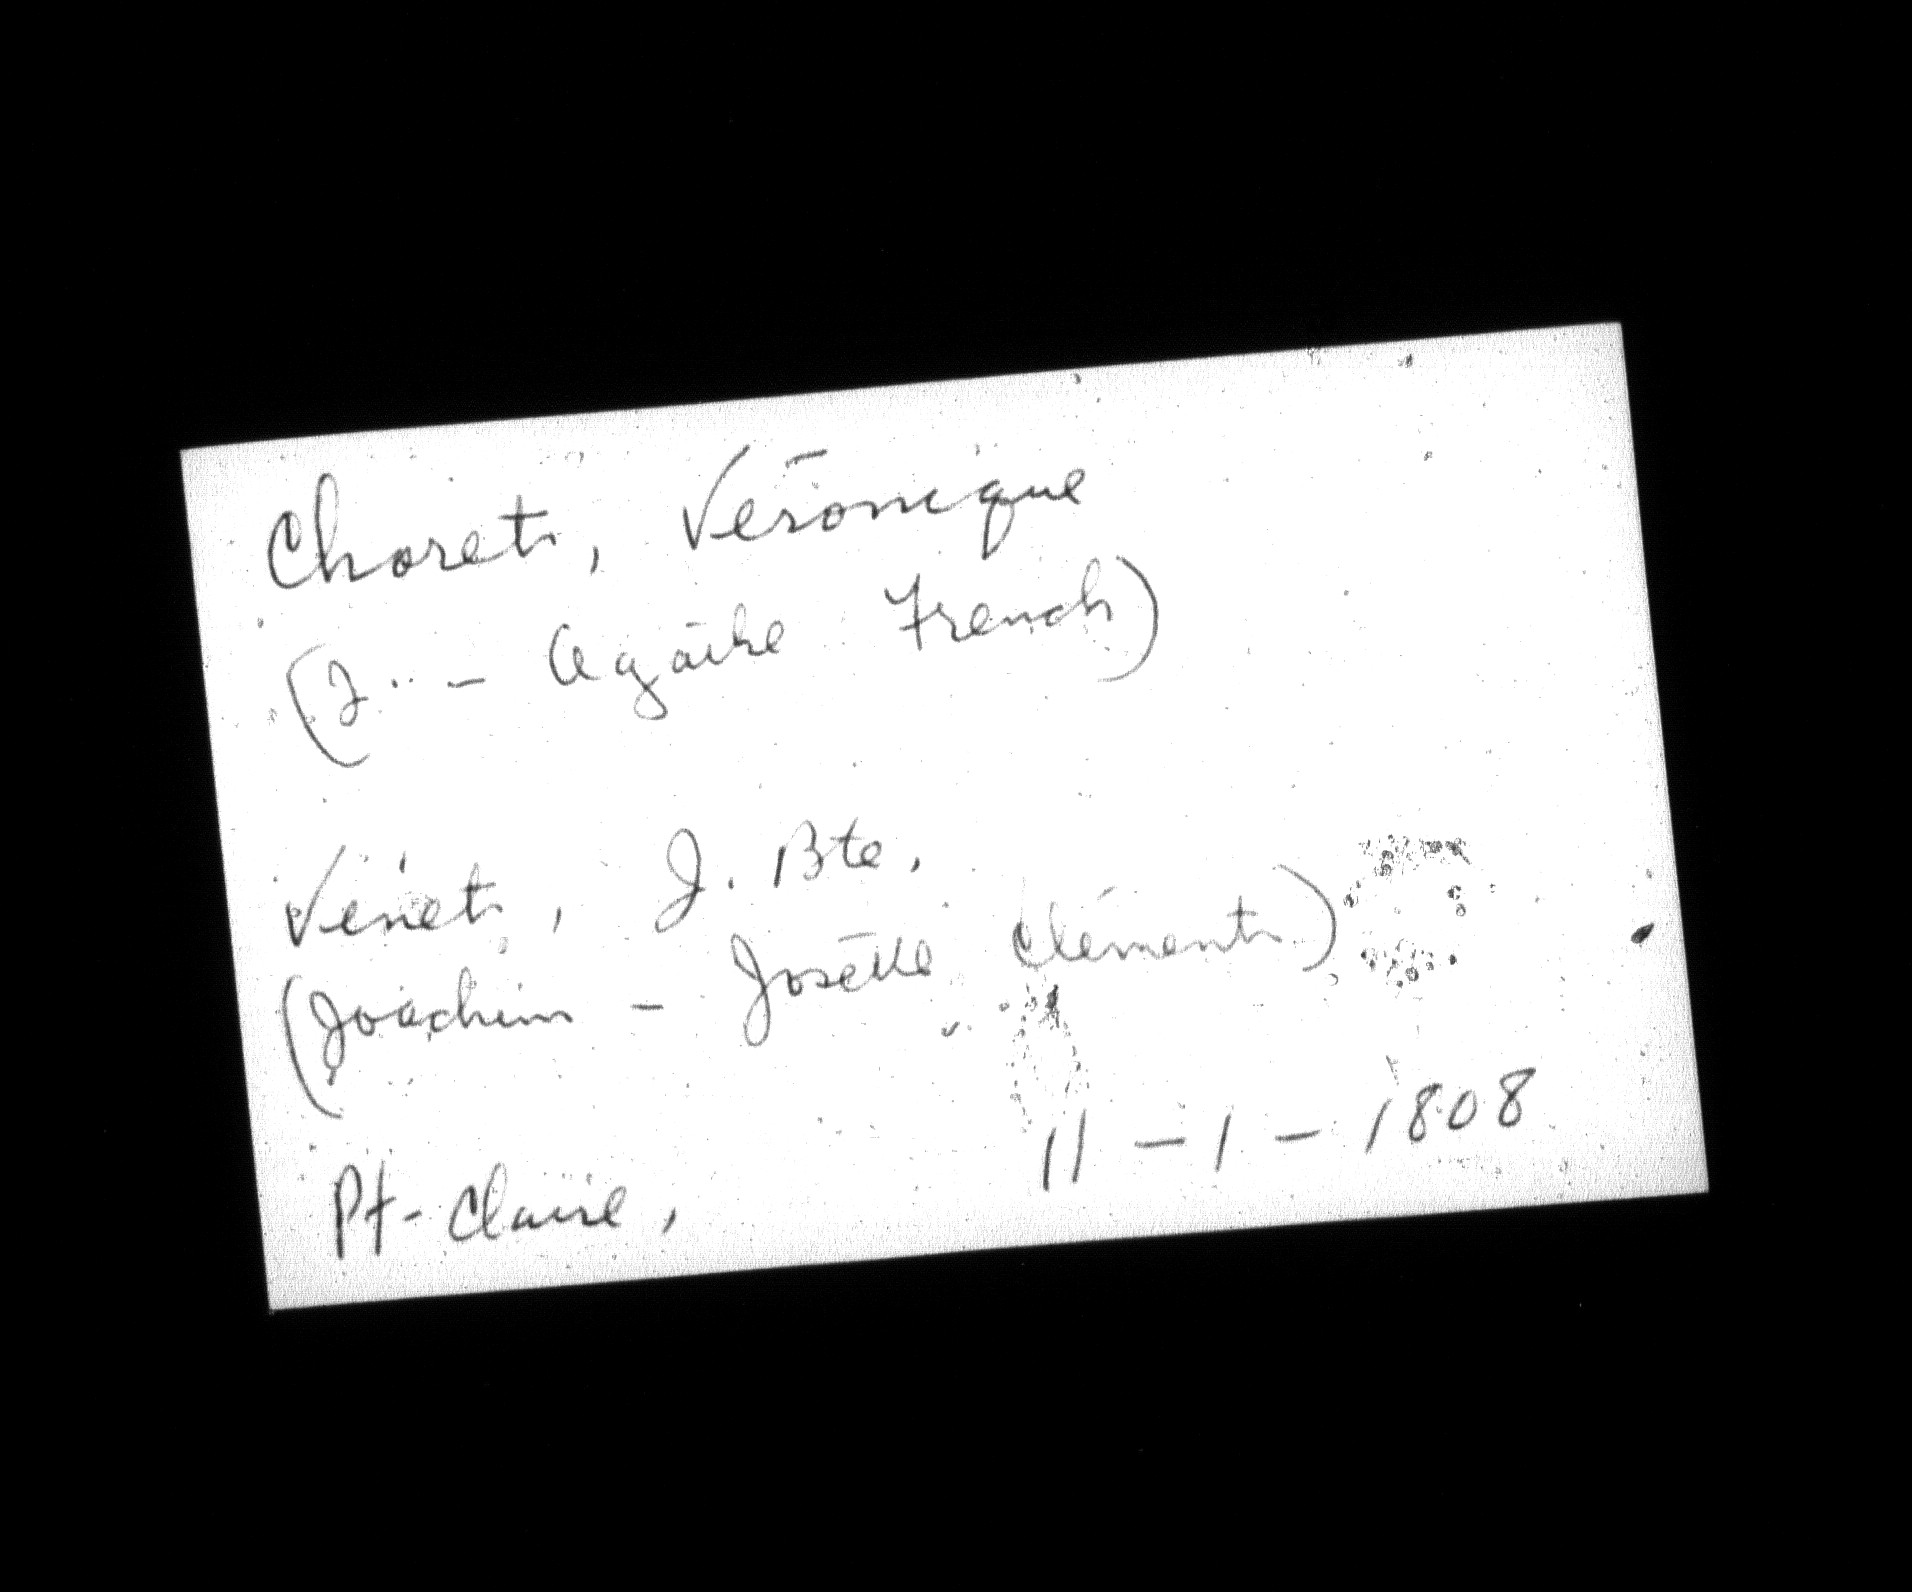 Choret, Véronique
(J.. - Agathe French)
Venet, J. Bte.
(Joachim - Josette Clément)
Pt-Claire, 11-1-1808